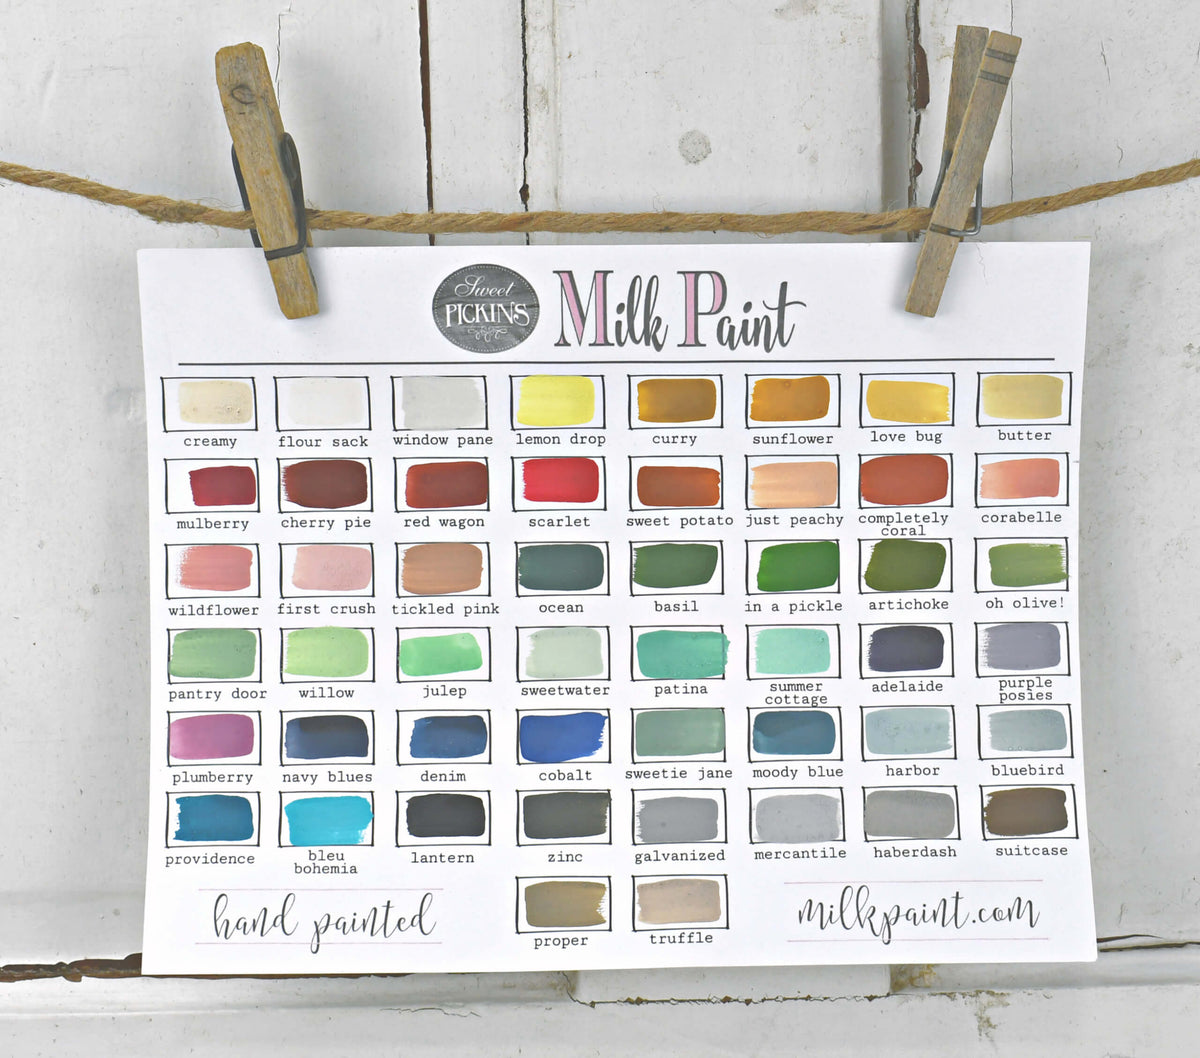 Sweet
PICKINS
Milk Paint
creamy flour sack window pane lemon drop curry sunflower love bug butter
mulberry cherry pie red wagon scarlet sweet potato just peachy completely coral corabelle
wildflower first crush tickled pink ocean basil in a pickle artichoke oh olive!
pantry door willow julep sweetwater patina summer cottage adelaide purple posies
plumberry navy blues denim cobalt sweetie jane moody blue harbor bluebird
providence bleu bohemia lantern zinc galvanized mercantile haberdash suitcase
hand painted
proper truffle
milkpaint.com